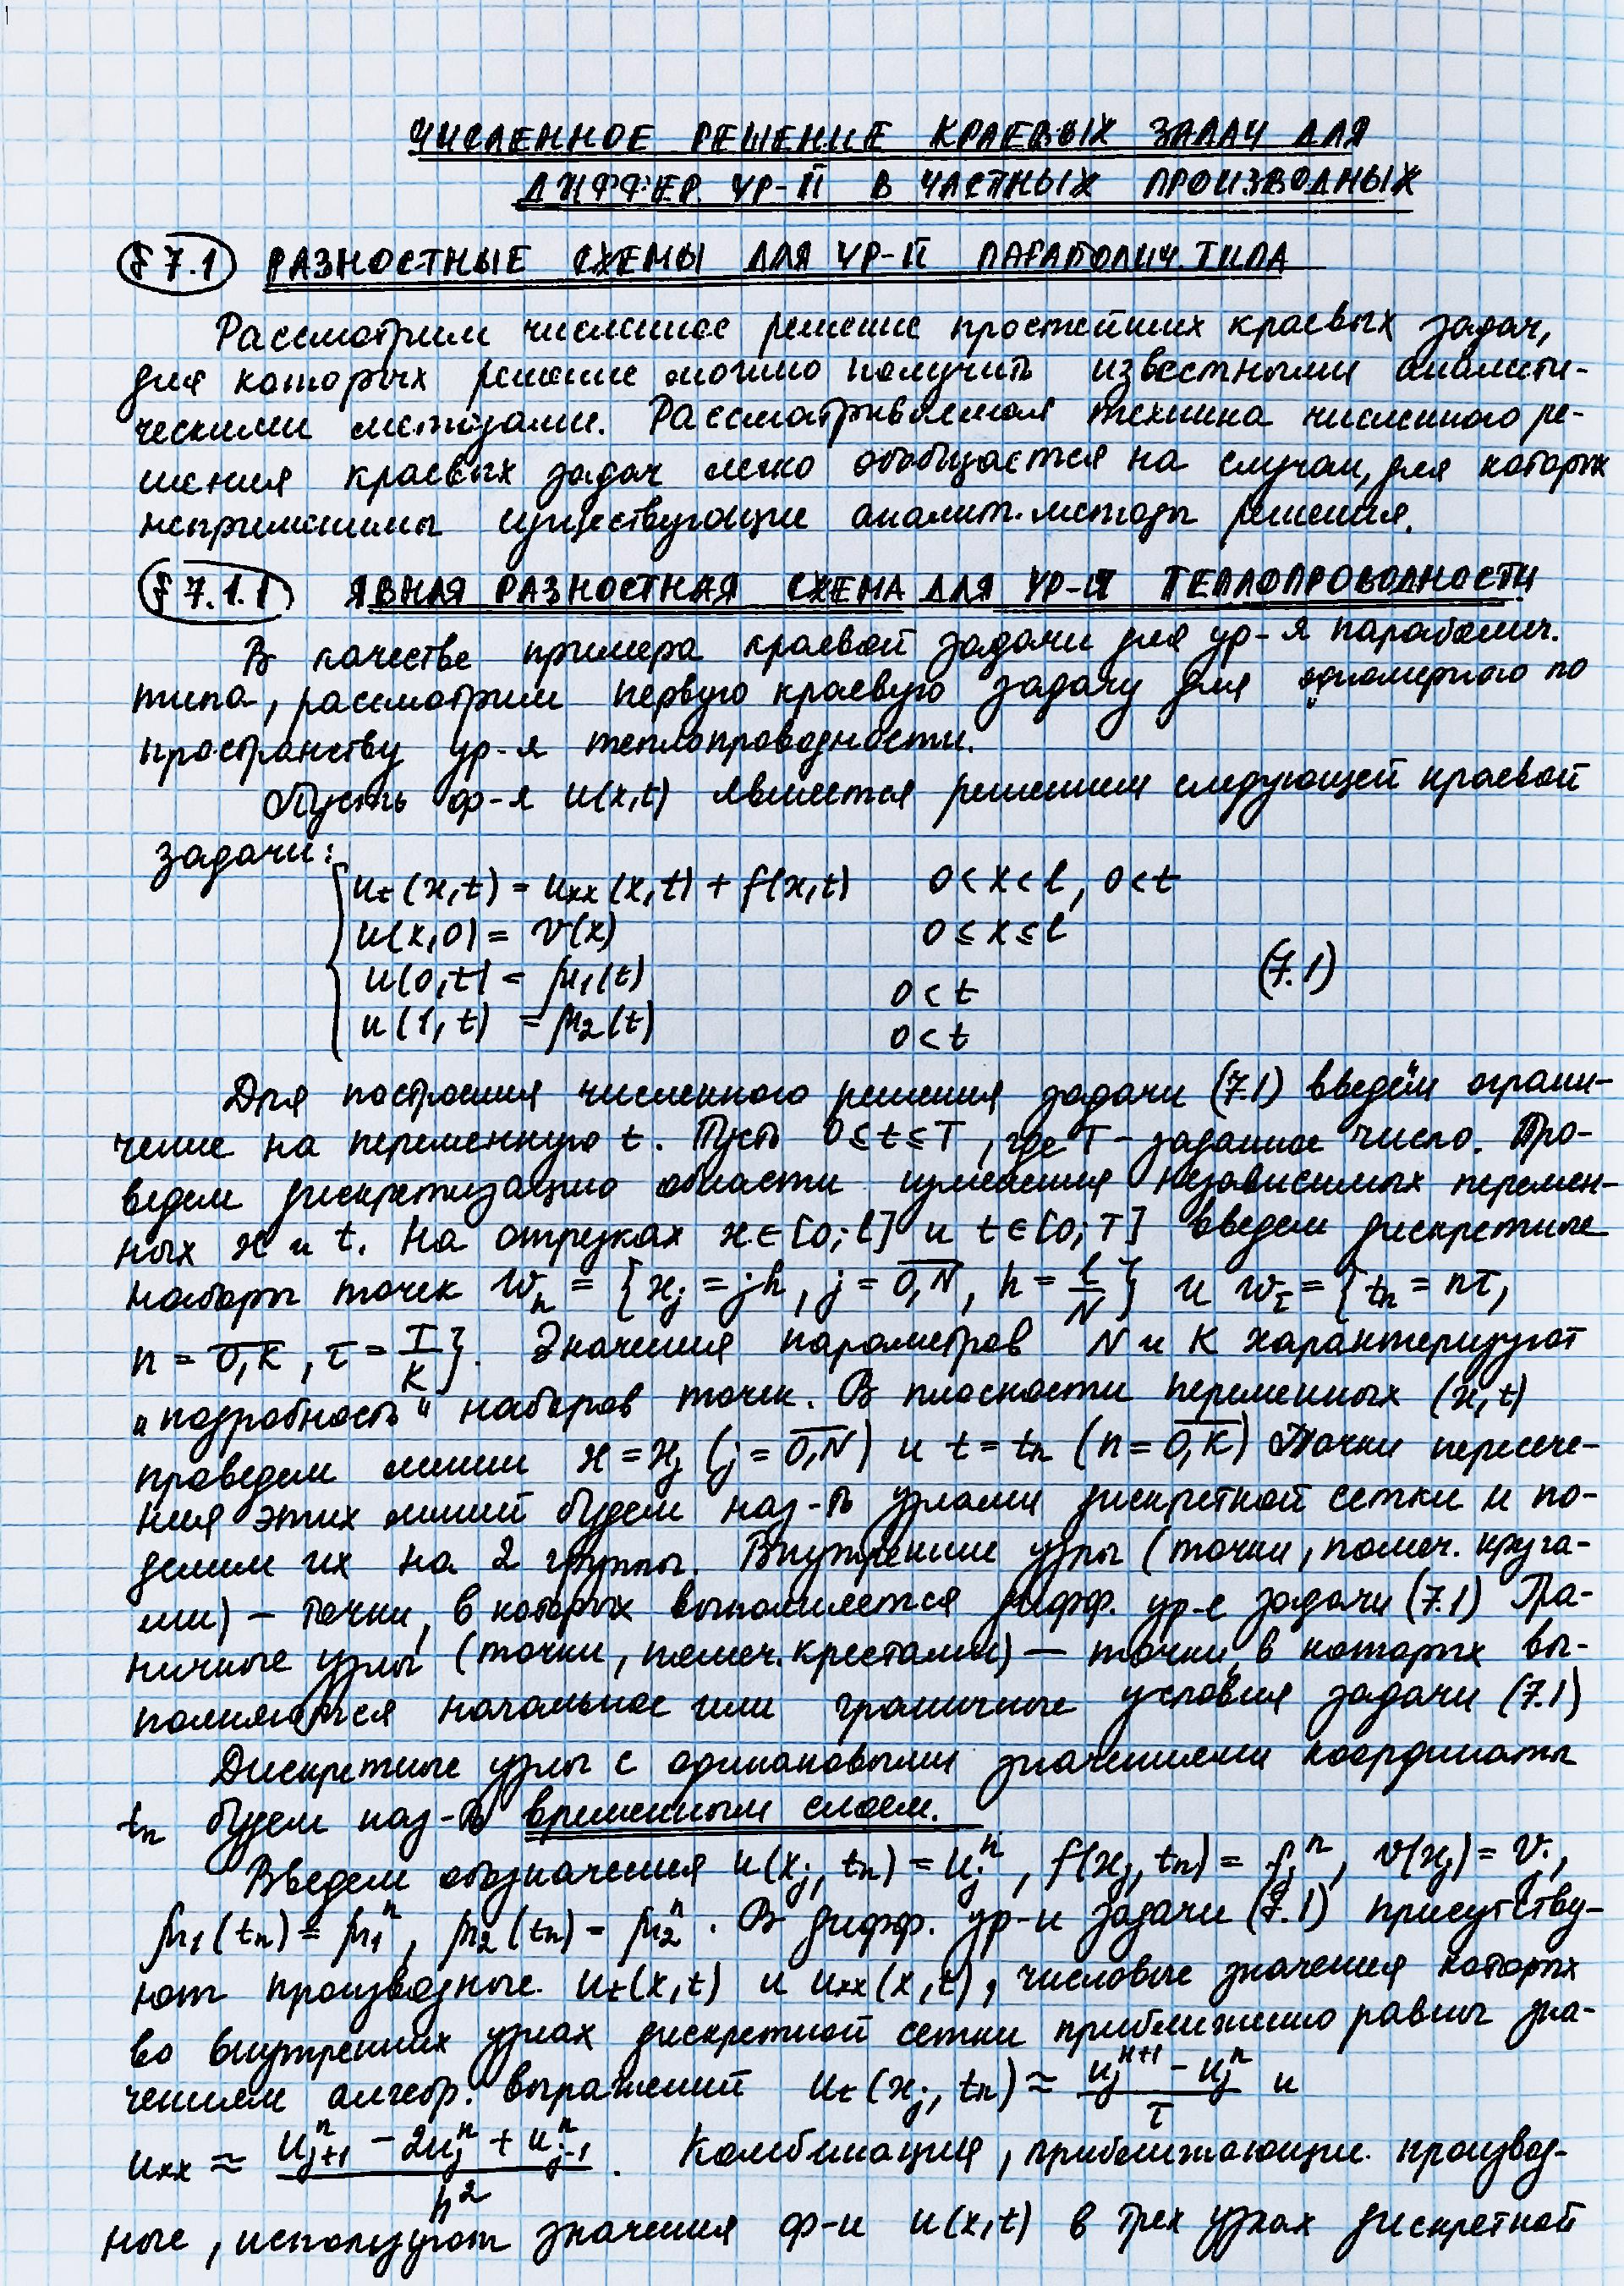 ЧИСЛЕННОЕ РЕШЕНИЕ КРАЕВЫХ ЗАДАЧ ДЛЯ
ДИФФЕР. УР-Й В ЧАСТНЫХ ПРОИЗВОДНЫХ
§ 7.1 РАЗНОСТНЫЕ СХЕМЫ ДЛЯ УР-Й ПАРАБОЛИЧ. ТИПА
Рассмотрим численное решение простейших краевых задач,
для которых решение можно получить известными аналити-
ческими методами. Рассматриваемая техника численного ре-
шения краевых задач легко обобщается на случаи, для которых
неприменимы существующие аналит. методы решения.
§ 7.1.1 ЯВНАЯ РАЗНОСТНАЯ СХЕМА ДЛЯ УР-Я ТЕПЛОПРОВОДНОСТИ
В качестве примера краевой задачи для ур-я параболич.
типа, рассмотрим первую краевую задачу для одномерного по
пространству ур-я теплопроводности.
Пусть ф-я u(x,t) является решением следующей краевой
задачи:
u_t(x,t) = u_xx(x,t) + f(x,t) 0 < x < l, 0 < t
u(x,0) = v(x) 0 ≤ x ≤ l
u(0,t) = μ₁(t) 0 < t (7.1)
u(1,t) = μ₂(t) 0 < t
Для построения численного решения задачи (7.1) введём ограни-
чение на переменную t. Пусть 0 ≤ t ≤ T, где T – заданное число. Про-
ведем дискретизацию области изменения независимых перемен-
ных x и t. На отрезках x ∈ [0; l] и t ∈ [0; T] введем дискретные
наборы точек w_h = {x_j = jh, j = 0,N, h = l/N} и w_τ = {t_n = nτ,
n = 0,K, τ = T/K}. Значения параметров N и K характеризуют
"подробность" наборов точек. В плоскости переменных (x,t)
проведем линии x = x_j (j = 0,N) и t = t_n (n = 0,K) Точки пересече-
ния этих линий будем наз-ть узлами дискретной сетки и по-
делим их на 2 группы. Внутренние узлы (точки, помеч. круга-
ми) – точки, в которых выполняется дифф. ур-е задачи (7.1) Гра-
ничные узлы (точки, помеч. крестами) – точки, в которых вы-
полняются начальное или граничные условия задачи (7.1)
Дискретные узлы с одинаковыми значениями координаты
t_n будем наз-ть временным слоем.
Введем обозначения u(x_j, t_n) = u_j^n, f(x_j, t_n) = f_j^n, v(x_j) = v_j,
μ₁(t_n) = μ₁^n, μ₂(t_n) = μ₂^n. В дифф. ур-и задачи (7.1) присутству-
ют производные u_t(x,t) и u_xx(x,t), числовые значения которых
во внутренних узлах дискретной сетки приближенно равны зна-
чениям алгебр. выражений u_t(x_j, t_n) ≈ (u_j^{n+1} - u_j^n)/τ и
u_xx ≈ (u_{j+1}^n - 2u_j^n + u_{j-1}^n)/h². Комбинация, приближающие производ-
ные, используют значения ф-и u(x,t) в трех узлах дискретной